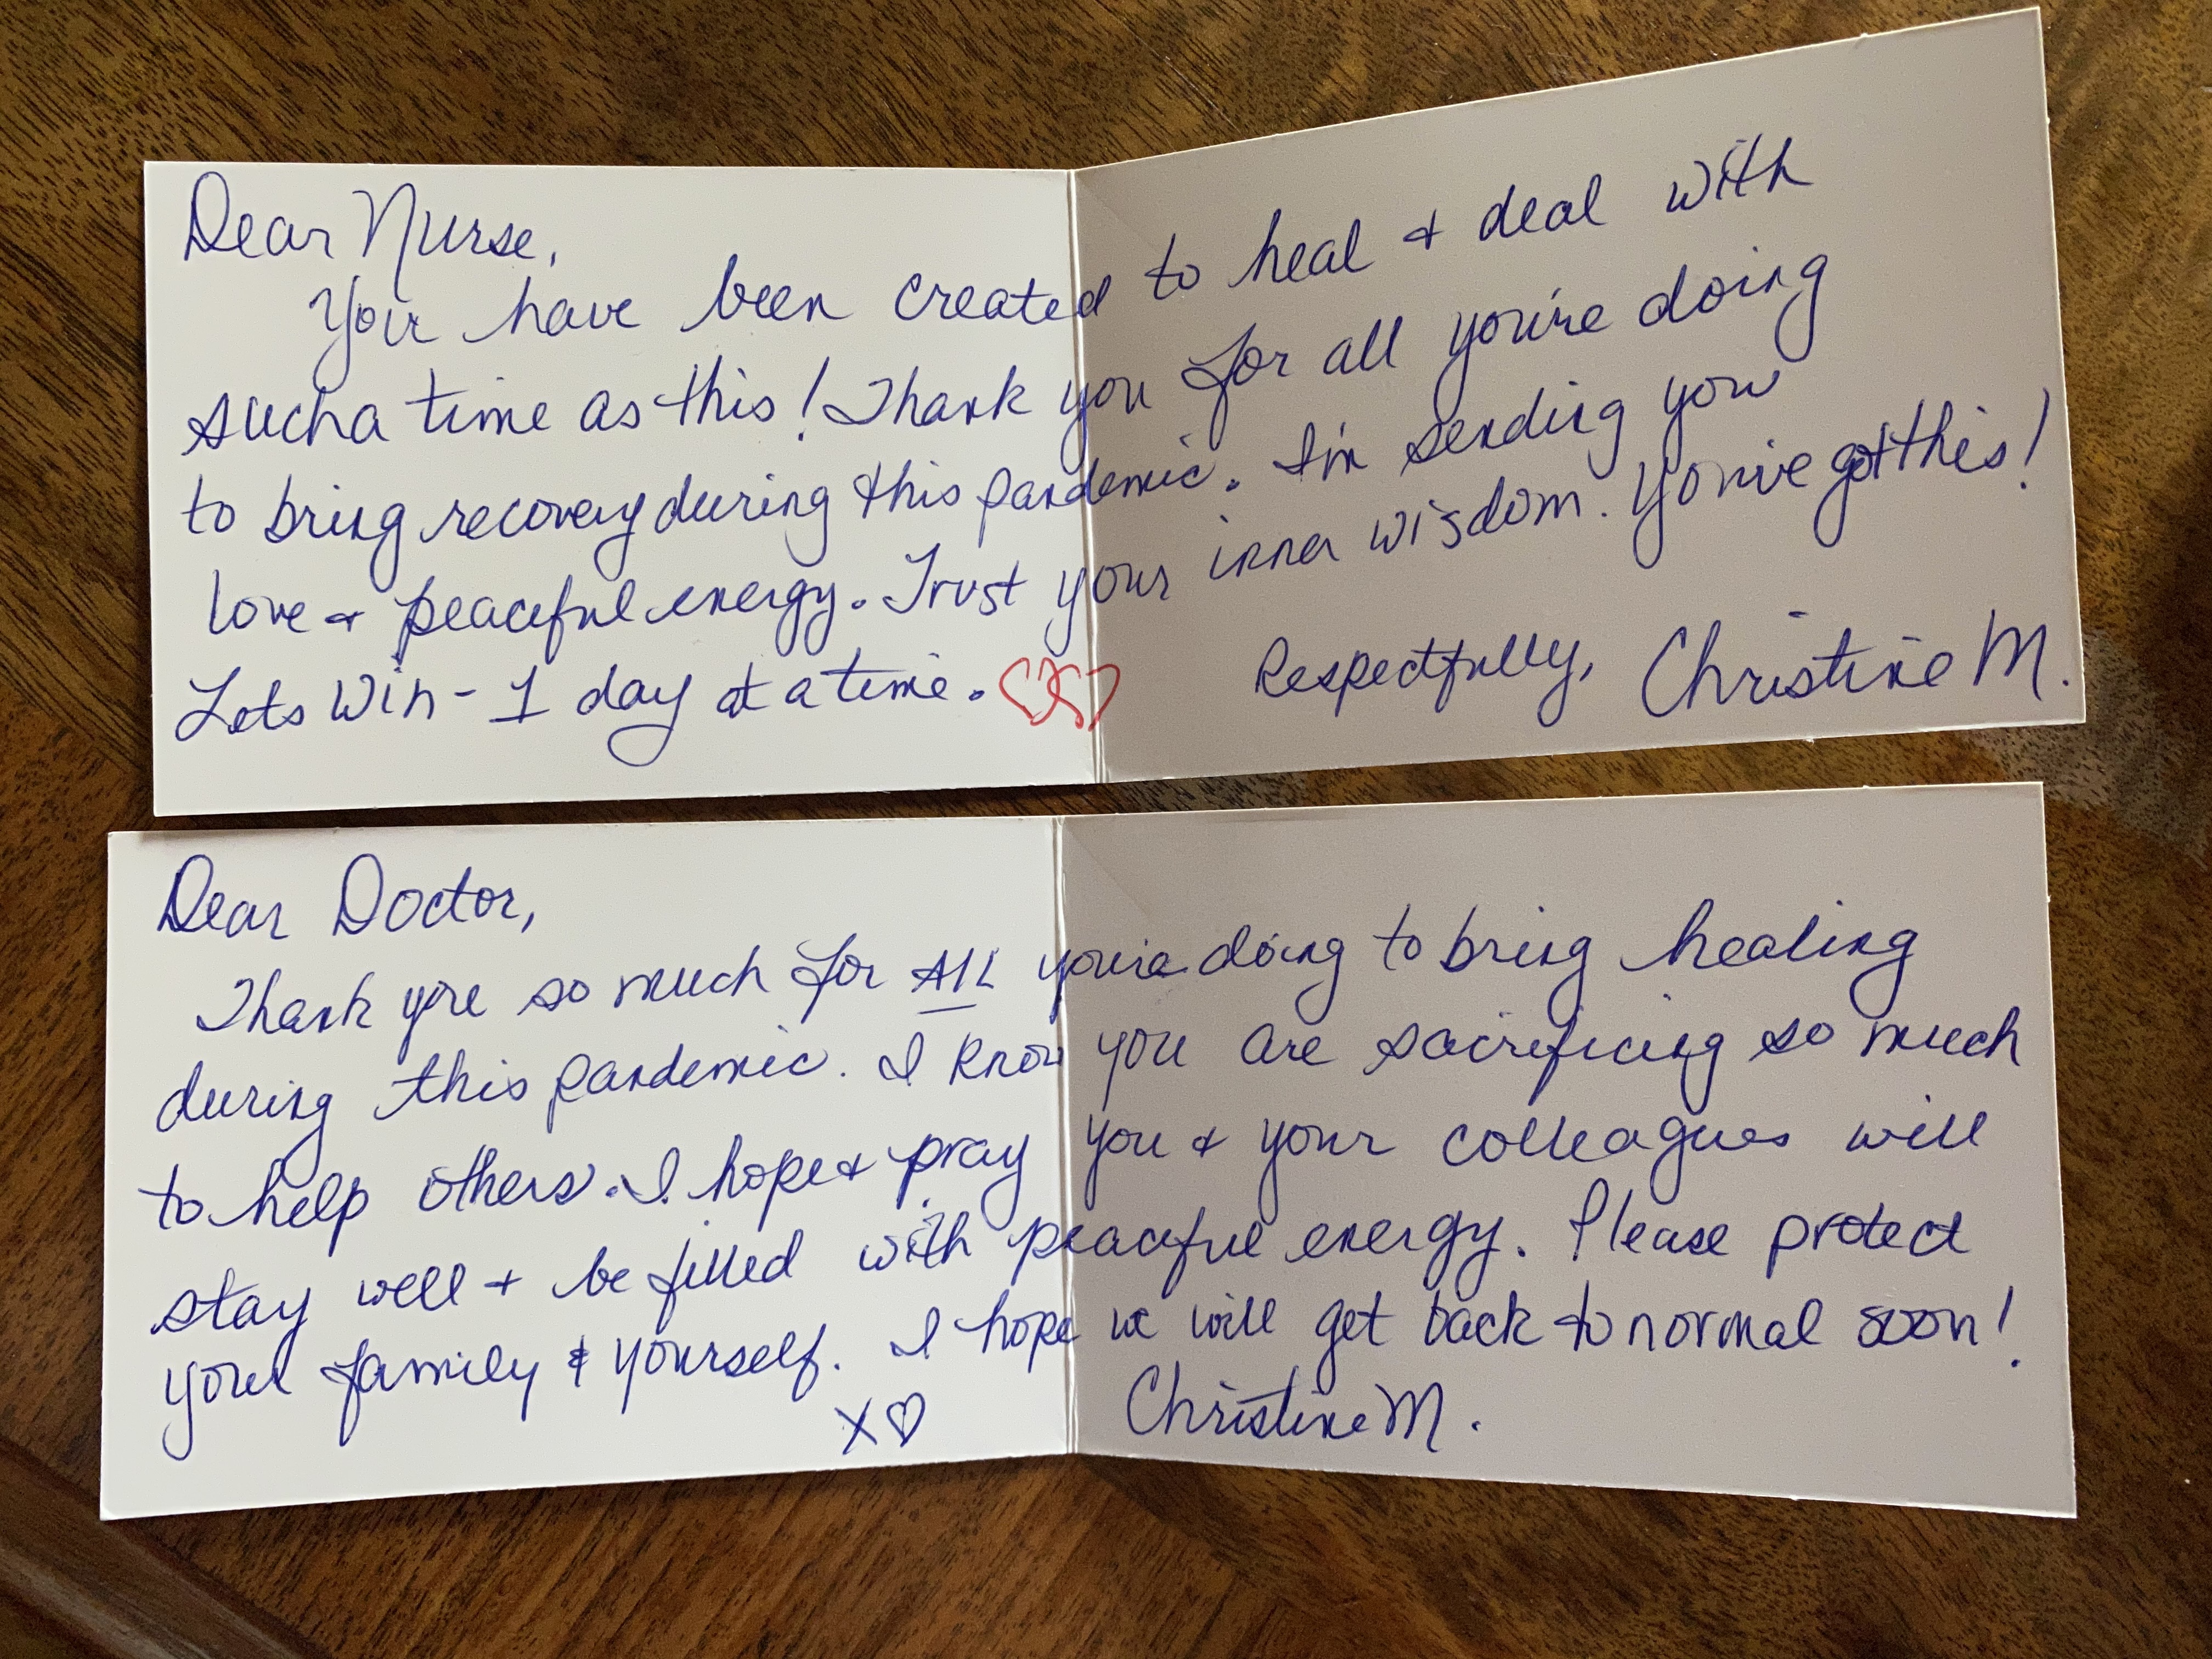 Dear Nurse,
You have been created to heal + deal with
such a time as this! Thank you for all you're doing
to bring recovery during this pandemic. I'm sending you
love + peaceful energy. Trust your inner wisdom. You've got this!
Lets win - 1 day at a time.
Respectfully, Christine M.
Dear Doctor,
Thank you so much for ALL you're doing to bring healing
during this pandemic. I know you are sacrificing so much
to help others. I hope + pray you + your colleagues will
stay well + be filled with peaceful energy. Please protect
your family & yourself. I hope we will get back to normal soon!
X♡ Christine M.